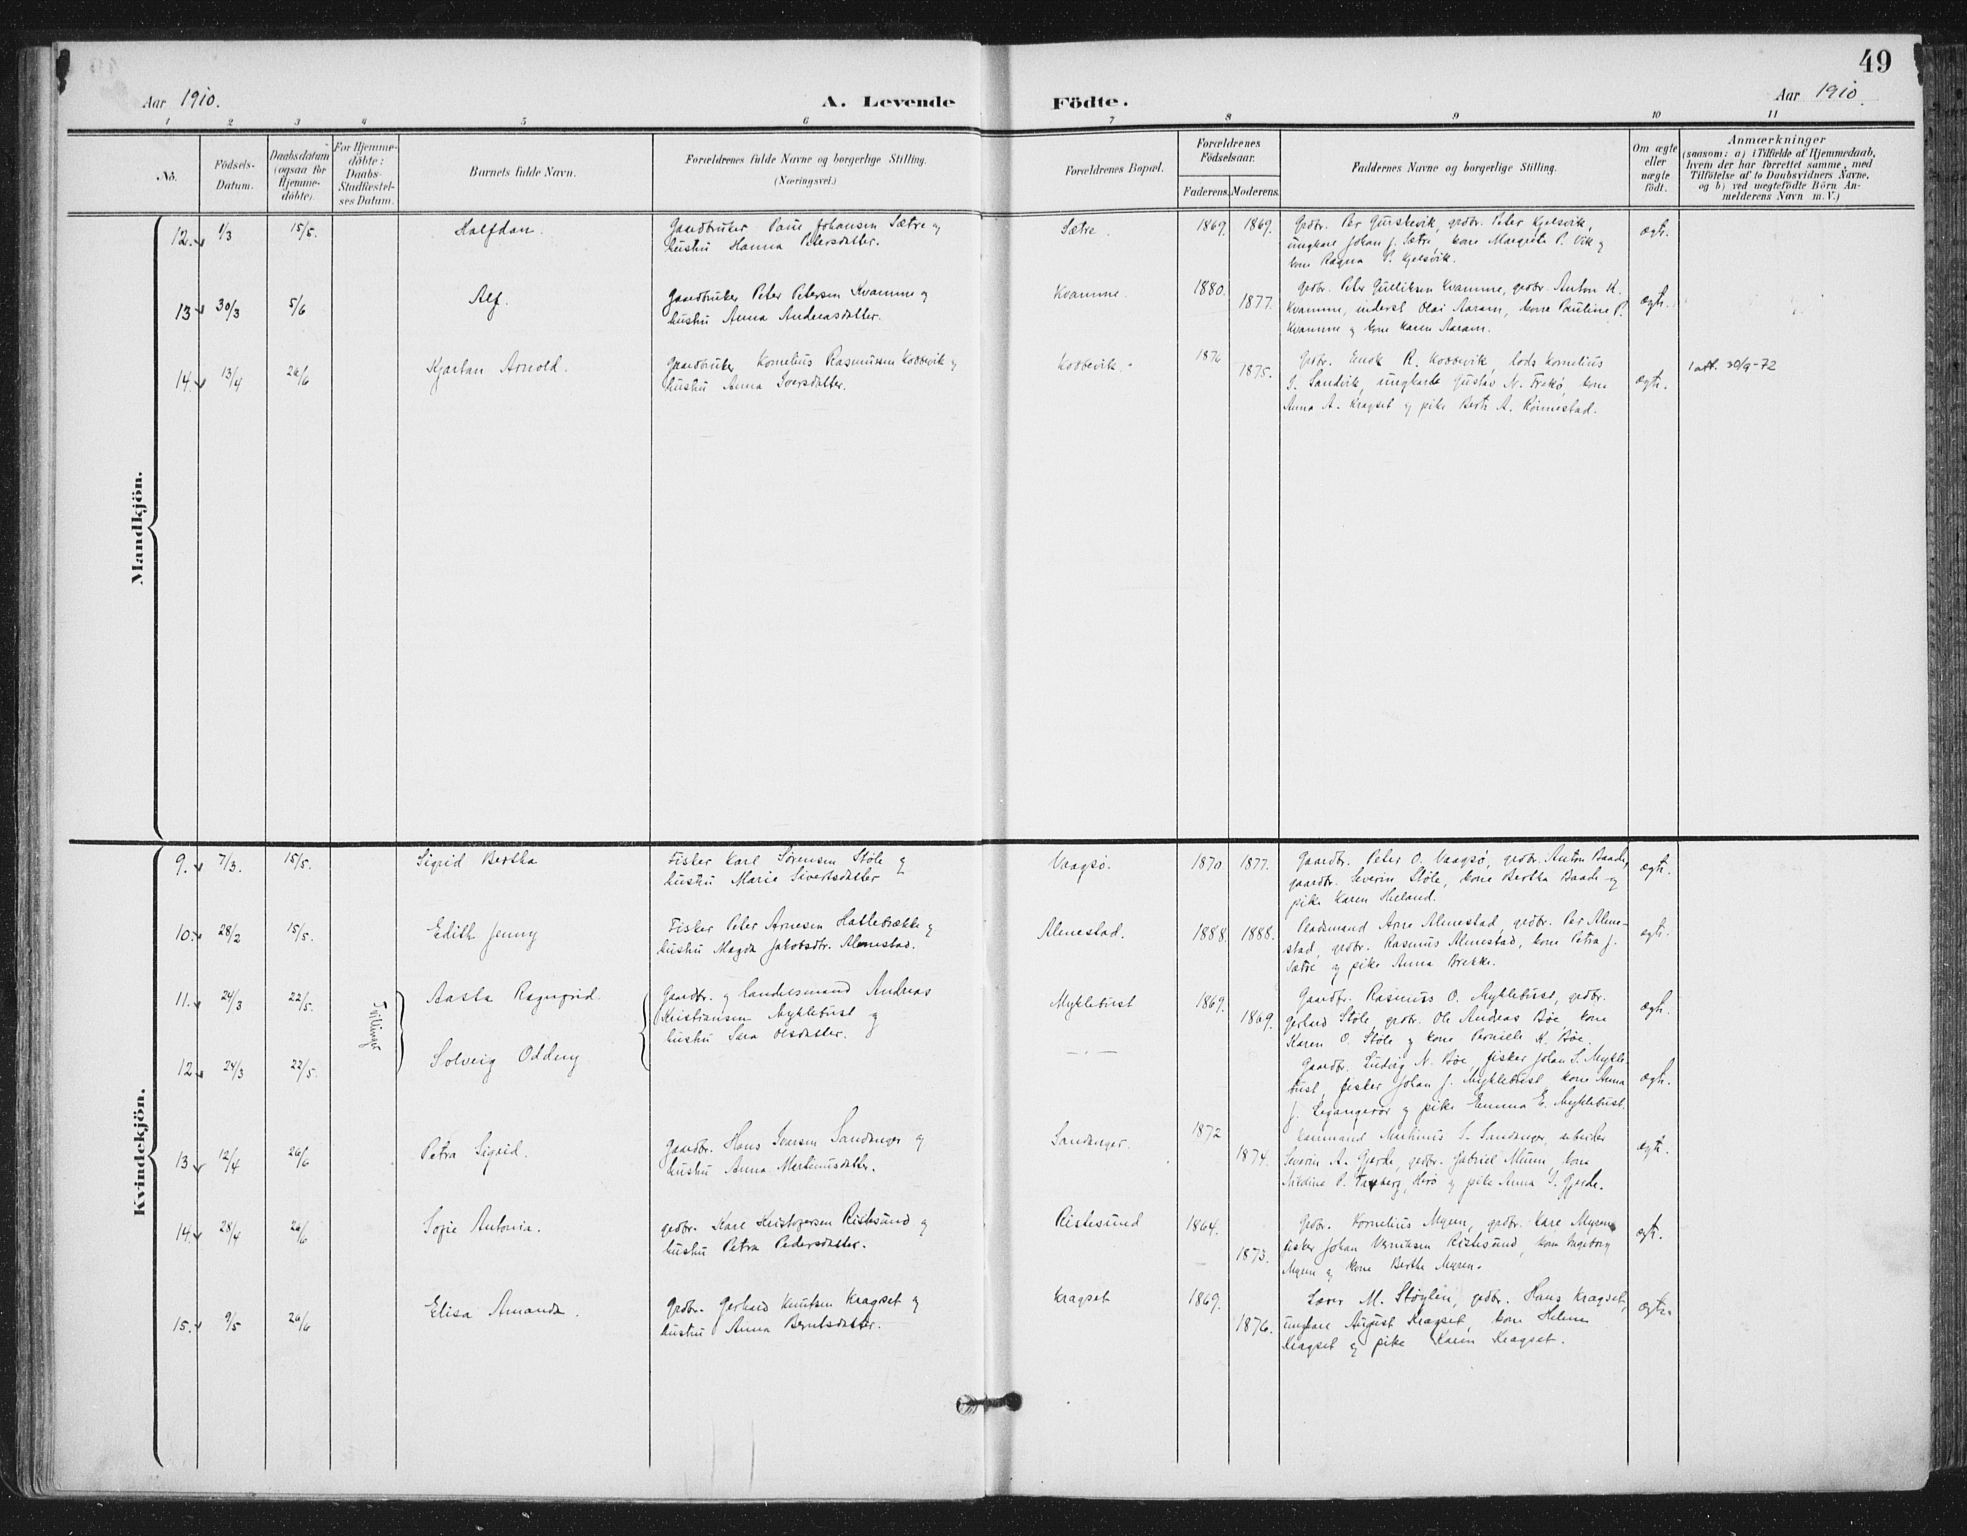 49
Aar 1910.
A. Levende Födte.
Aar 1910.
1 2 3 4 5 6 7 8 9 10 11
No.
Födsels-
Datum.
Daabsdatum
(ogsaa for
Hjemme-
döbte).
For Hjemme-
döbte:
Daabs-
Stadfæstel-
ses Datum.
Barnets fulde Navn.
Forældrenes fulde Navne og borgerlige Stilling.
(Næringsvei.)
Forældrenes Bopæl.
Forældrenes
Födselsaar.
Faderens. Moderens.
Faddernes Navne og borgerlige Stilling.
Om ægte
eller
uægte
födt.
Anmærkninger
(saasom: a) i Tilfælde af Hjemmedaab,
hvem der har forrettet samme, med
Tilföielse af to Daabsvidners Navne,
og b) ved uægtefödte Börn An-
melderens Navn m. V.)
Mandkjön.
12. 1/3 15/5. Halfdan.
Gaardbruker Paul Johansen Sætre og
hustru Hanna Petersdatter.
Sætre. 1869. 1869.
ungkarl Johan J. Sætre, kone Margrete P. Vik og
kone Ragna P. Kjelsvik.
ægte.
13 30/3 5/6 Alf.
Gaardbruker Peter Petersen Kvamme og
hustru Anna Andreasdatter.
Kvamme. 1880. 1877.
Grdbr. Peter Gulliksen Kvamme, grdbr. Anton K.
Kvamme, inderst Olai Aaram, kone Pauline P.
Kvamme og kone Karen Aaram.
ægte.
14. 13/4 26/6 Kjartan Arnold.
Gaardbruker Kornelius Rasmussen Kobbevik og
hustru Anna Iversdatter.
Kobbevik. 1876 1875.
Grdbr. Enok R. Kobbevik, lods Kornelius
J. Sandvik, ungkarl Gustav N. Frekø, kone
Anna A. Kragset og pike Berte A. Rønnestad.
ægte.
1 att. 30/9-72
Kvindekjön.
9. 7/3. 15/5. Sigrid Bertha
Fisker Karl Sørensen Støle og
hustru Marie Sivertsdatter
Vaagsø. 1870. 1877.
Gaardbr. Peter O. Vaagsø, grdbr. Anton Baade,
gaardbr. Severin Støle, kone Bertha Baade og
pike Karen Hieland.
ægte.
10. 28/2 15/5. Edith Jenny
Fisker Peter Arnesen Hatlebrække og
hustru Magda Jakobsdtr. Almestad.
Almestad. 1888. 1888.
Pladsmand Arne Almestad, grdbr. Per Alme-
stad, grdbr. Rasmus Almestad, kone Petra J.
Sætre og pike Anna Brekke.
ægte.
11. 24/3 22/5. Tvillinger Aasta Ragnfrid.
Gaardbr. og landhandler Andreas
Kristiansen Myklebust og
hustru Sara Olsdatter.
Myklebust 1869. 1869.
Gaardbr. Rasmus O. Myklebust, grdbr.
Gerhard Støle, grdbr. Ole Andreas Bøe, kone
Karen O. Støle og kone Pernille K. Bøe.
ægte.
12. 24/3 22/5. Solveig Oddny
Gaardbr. Ludvig N. Bøe, fisker Johan S. Mykle-
bust, fisker Johan J. Myklebust, kone Anna
J. Leganger og pike Emma E. Myklebust.
ægte.
13 12/4 26/6 Petra Sigrid.
Gaardbr. Hans Iversen Sandanger og
hustru Anna Martinusdatter.
Sandanger. 1872 1874.
Kaarmand Martinus S. Sandanger, arbeider
Severin A. Gjerde, grdbr. Gabriel Muren, kone
ægte.
14. 28/4 26/6 Sofie Antonia.
grdbr. Karl Kristofersen Ristesund og
hustru Petra Pedersdatter.
Ristesund 1864. 1873.
Grdbr. Kornelius Myren, grdbr. Karl Myren,
fisker Johan Henriksen Ristesund, kone Ingeborg
Myren og kone Berthe Myren.
ægte.
15. 9/5 26/6 Elisa Amanda.
Grdbr. Gerhard Knutsen Kragset og
hustru Anna Berntsdatter.
Kragset 1869. 1876.
Lærer M. Støylen, grdbr. Hans Kragset,
ungkarl August Kragset, kone Helene
Kragset og pike Karen Kragset.
ægte.